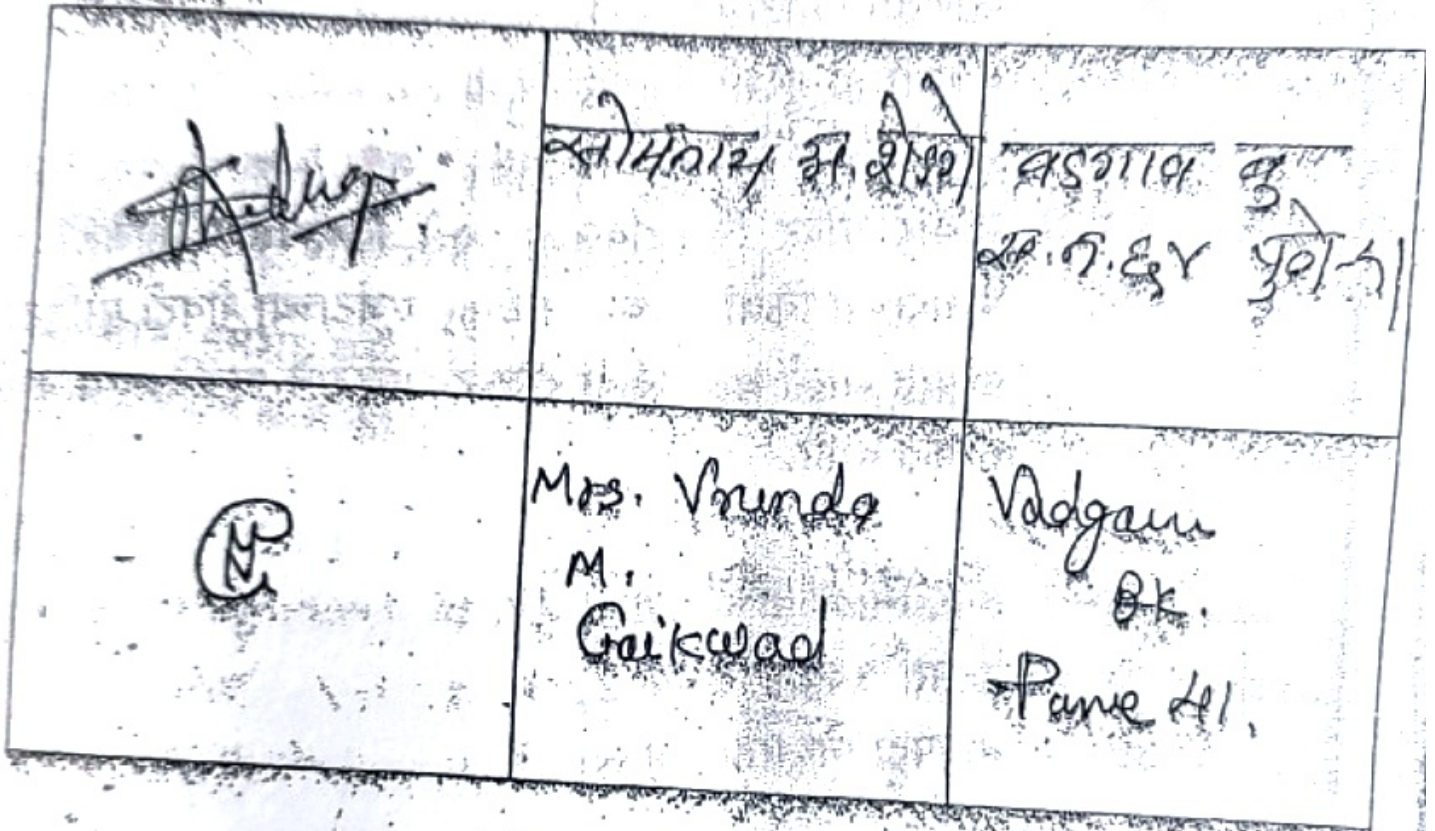 सोमनाथ म. शेंडगे
वडगाव बु
स.नं.६४ पुणे-४१
Mrs. Vrunda
M.
Gaikwad
Vadgaon
BK.
Pune 41.